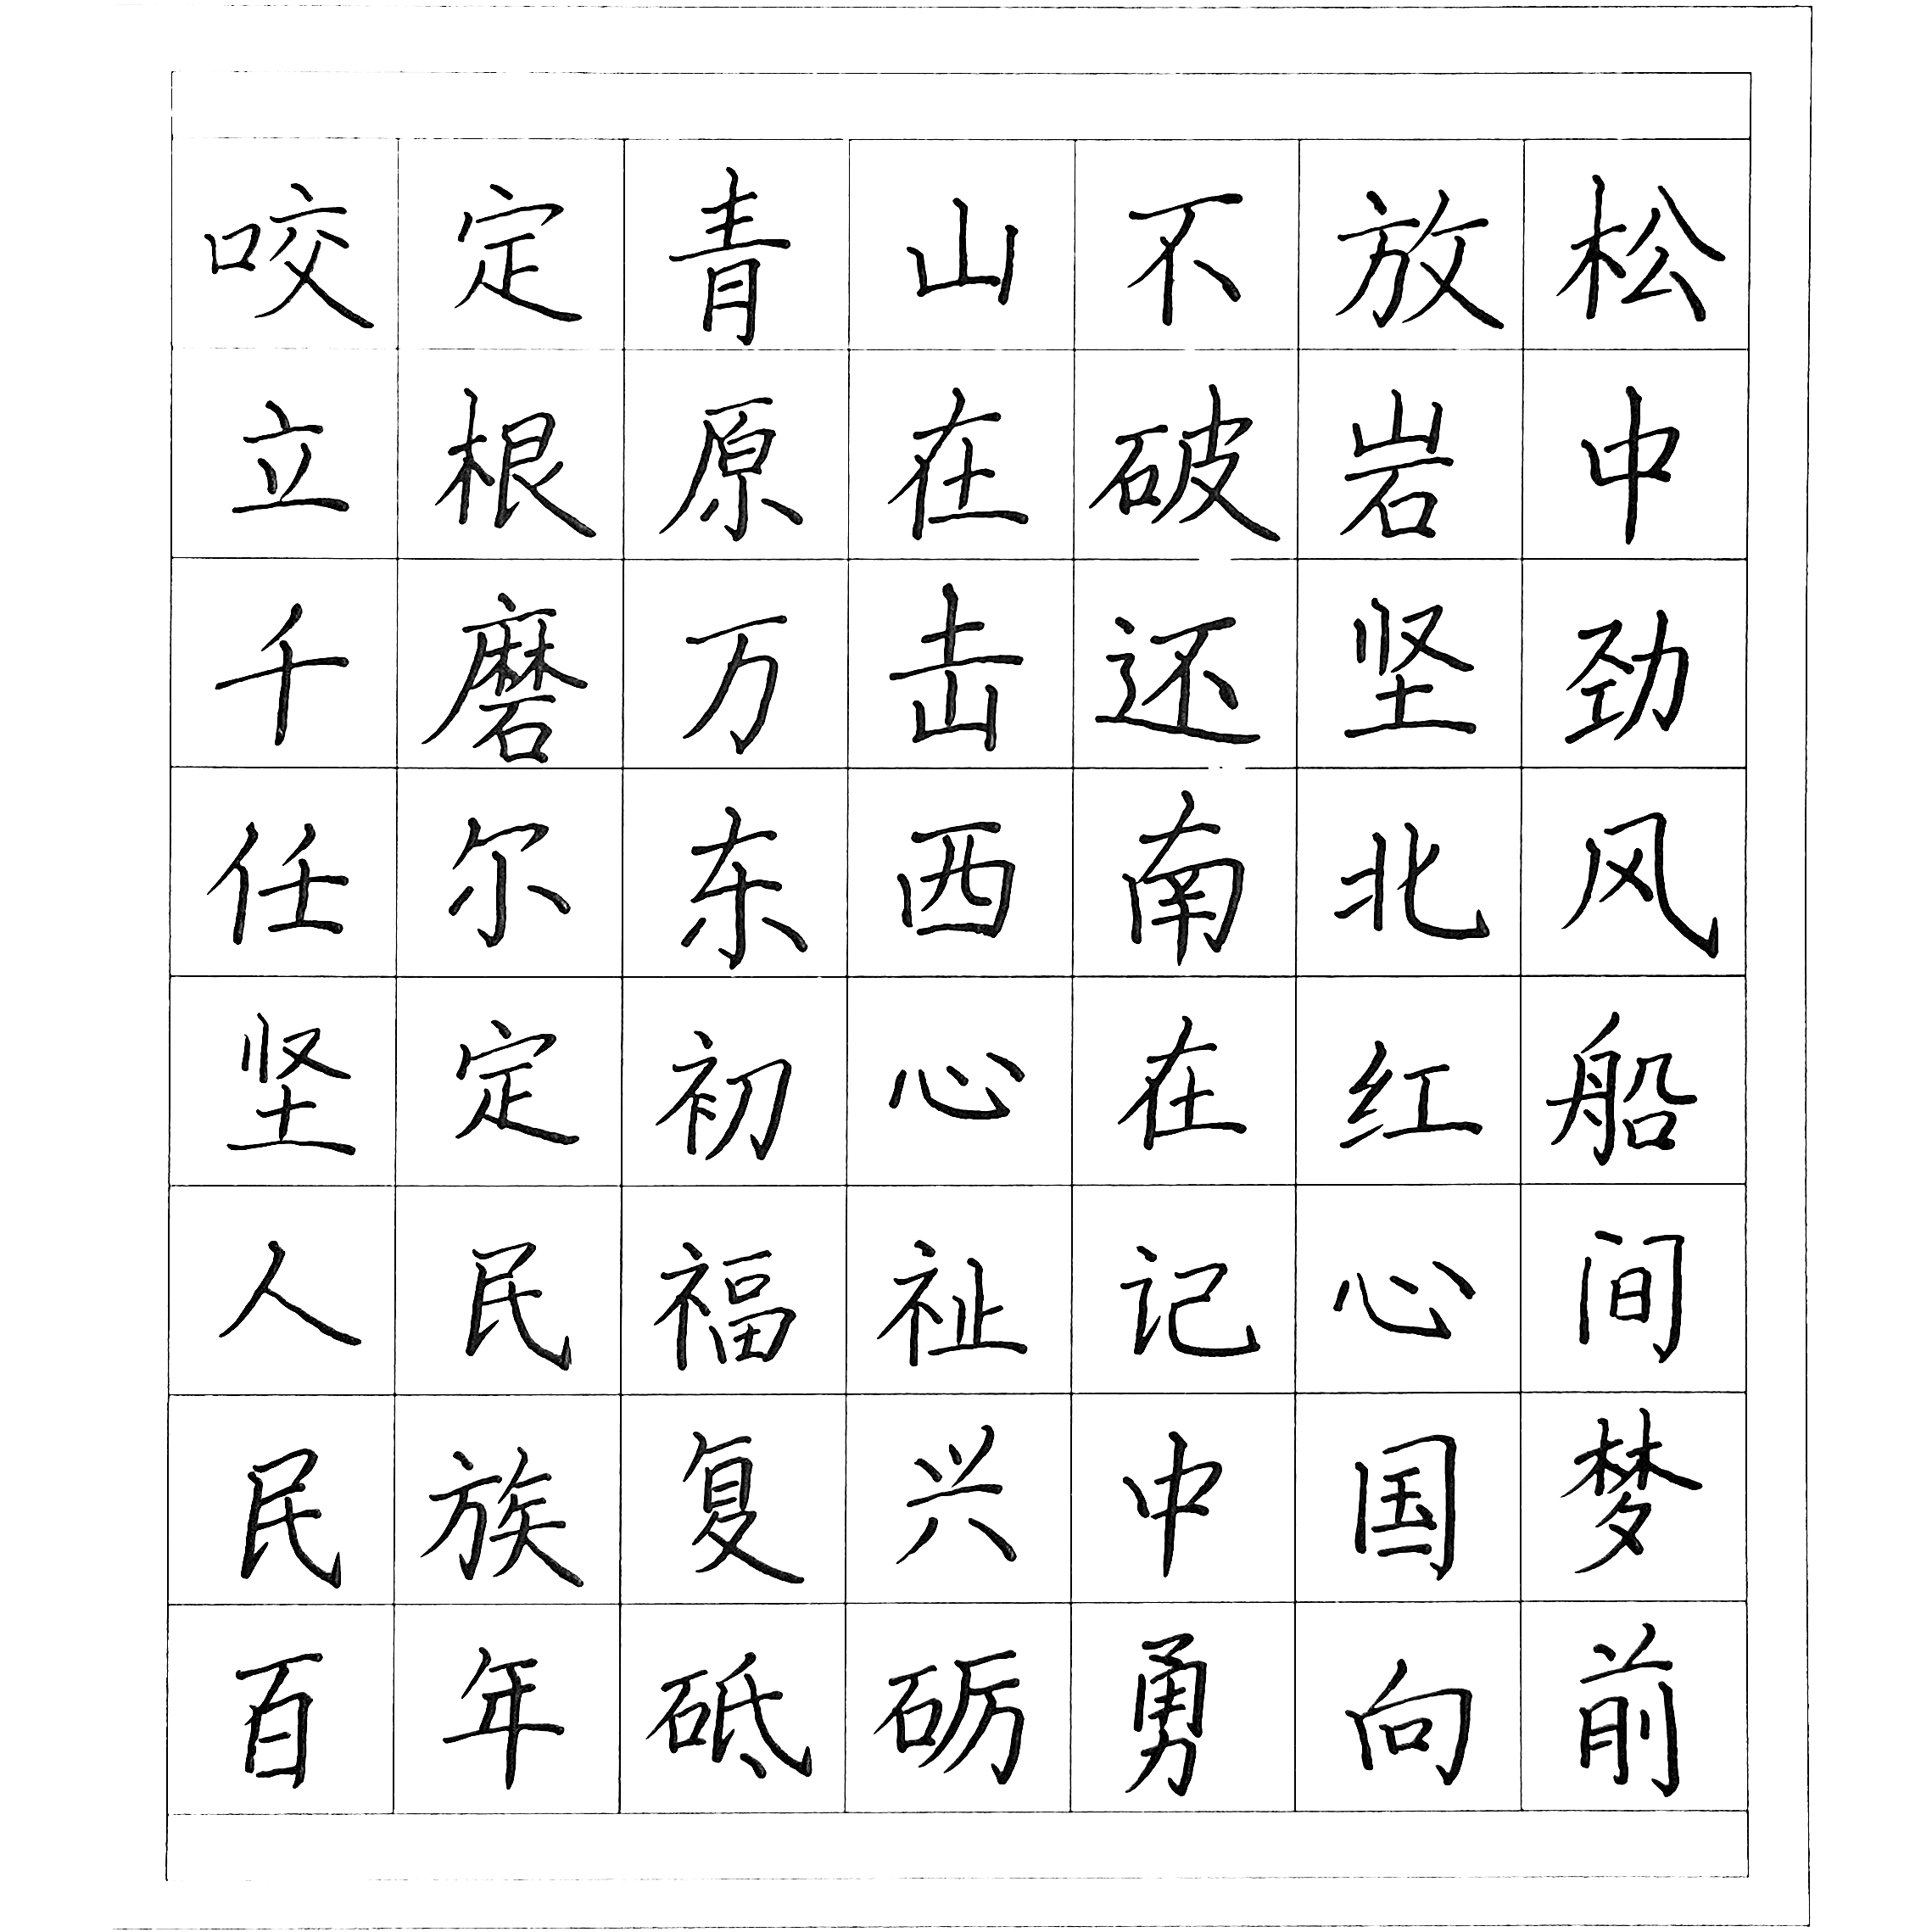 咬定青山不放松
立根原在破岩中
千磨万击还坚劲
任尔东西南北风
坚定初心在红船
人民福祉记心间
民族复兴中国梦
百年砥砺勇向前